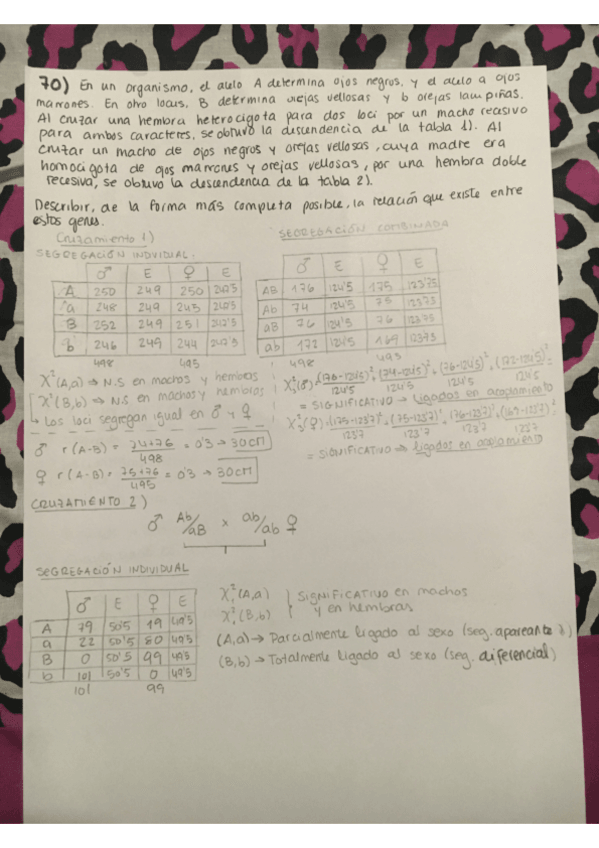 70) En un organismo, el alelo A determina ojos negros, y el alelo a ojos
marrones. En otro locus, B determina orejas vellosas y b orejas lampiñas.
Al cruzar una hembra heterocigota para dos loci por un macho recesivo
para ambos caracteres, se obtuvo la descendencia de la tabla 1). Al
cruzar un macho de ojos negros y orejas vellosas, cuya madre era
homocigota de ojos marrones y orejas vellosas, por una hembra doble
recesiva, se obtuvo la descendencia de la tabla 2).
Describir, de la forma más completa posible, la relación que existe entre
estos genes.
Cruzamiento 1)
SEGREGACIÓN INDIVIDUAL:
♂ E ♀ E
A 250 249 250 247'5
a 248 249 245 247'5
B 252 249 251 247'5
b 246 249 244 247'5
498 495
SEGREGACIÓN COMBINADA
♂ E ♀ E
AB 176 124'5 175 123'75
Ab 74 124'5 75 123'75
aB 76 124'5 76 123'75
ab 172 124'5 169 123'75
498 495
X²(A,a) ⇒ N.S en machos y hembras
X²(B,b) ⇒ N.S en machos y hembras
↳ Los loci segregan igual en ♂ y ♀
♂ r(A-B) = 74+76/498 = 0'3 → 30cM
♀ r(A-B) = 75+76/495 = 0'3 → 30cM
X²₃(♂) = (176-124'5)²/124'5 + (74-124'5)²/124'5 + (76-124'5)²/124'5 + (172-124'5)²/124'5
= SIGNIFICATIVO → Ligados en acoplamiento
X²₃(♀) = (175-123'7)²/123'7 + (75-123'7)²/123'7 + (76-123'7)²/123'7 + (169-123'7)²/123'7
= SIGNIFICATIVO → Ligados en acoplamiento
CRUZAMIENTO 2)
♂ Ab/aB x ab/ab ♀
SEGREGACIÓN INDIVIDUAL
♂ E ♀ E
A 79 50'5 19 49'5
a 22 50'5 80 49'5
B 0 50'5 99 49'5
b 101 50'5 0 49'5
101 99
X²₁(A,a)
X²₁(B,b)
SIGNIFICATIVO en machos
y en hembras
(A,a) → Parcialmente ligado al sexo (seg. apareante)
(B,b) → Totalmente ligado al sexo (seg. diferencial)